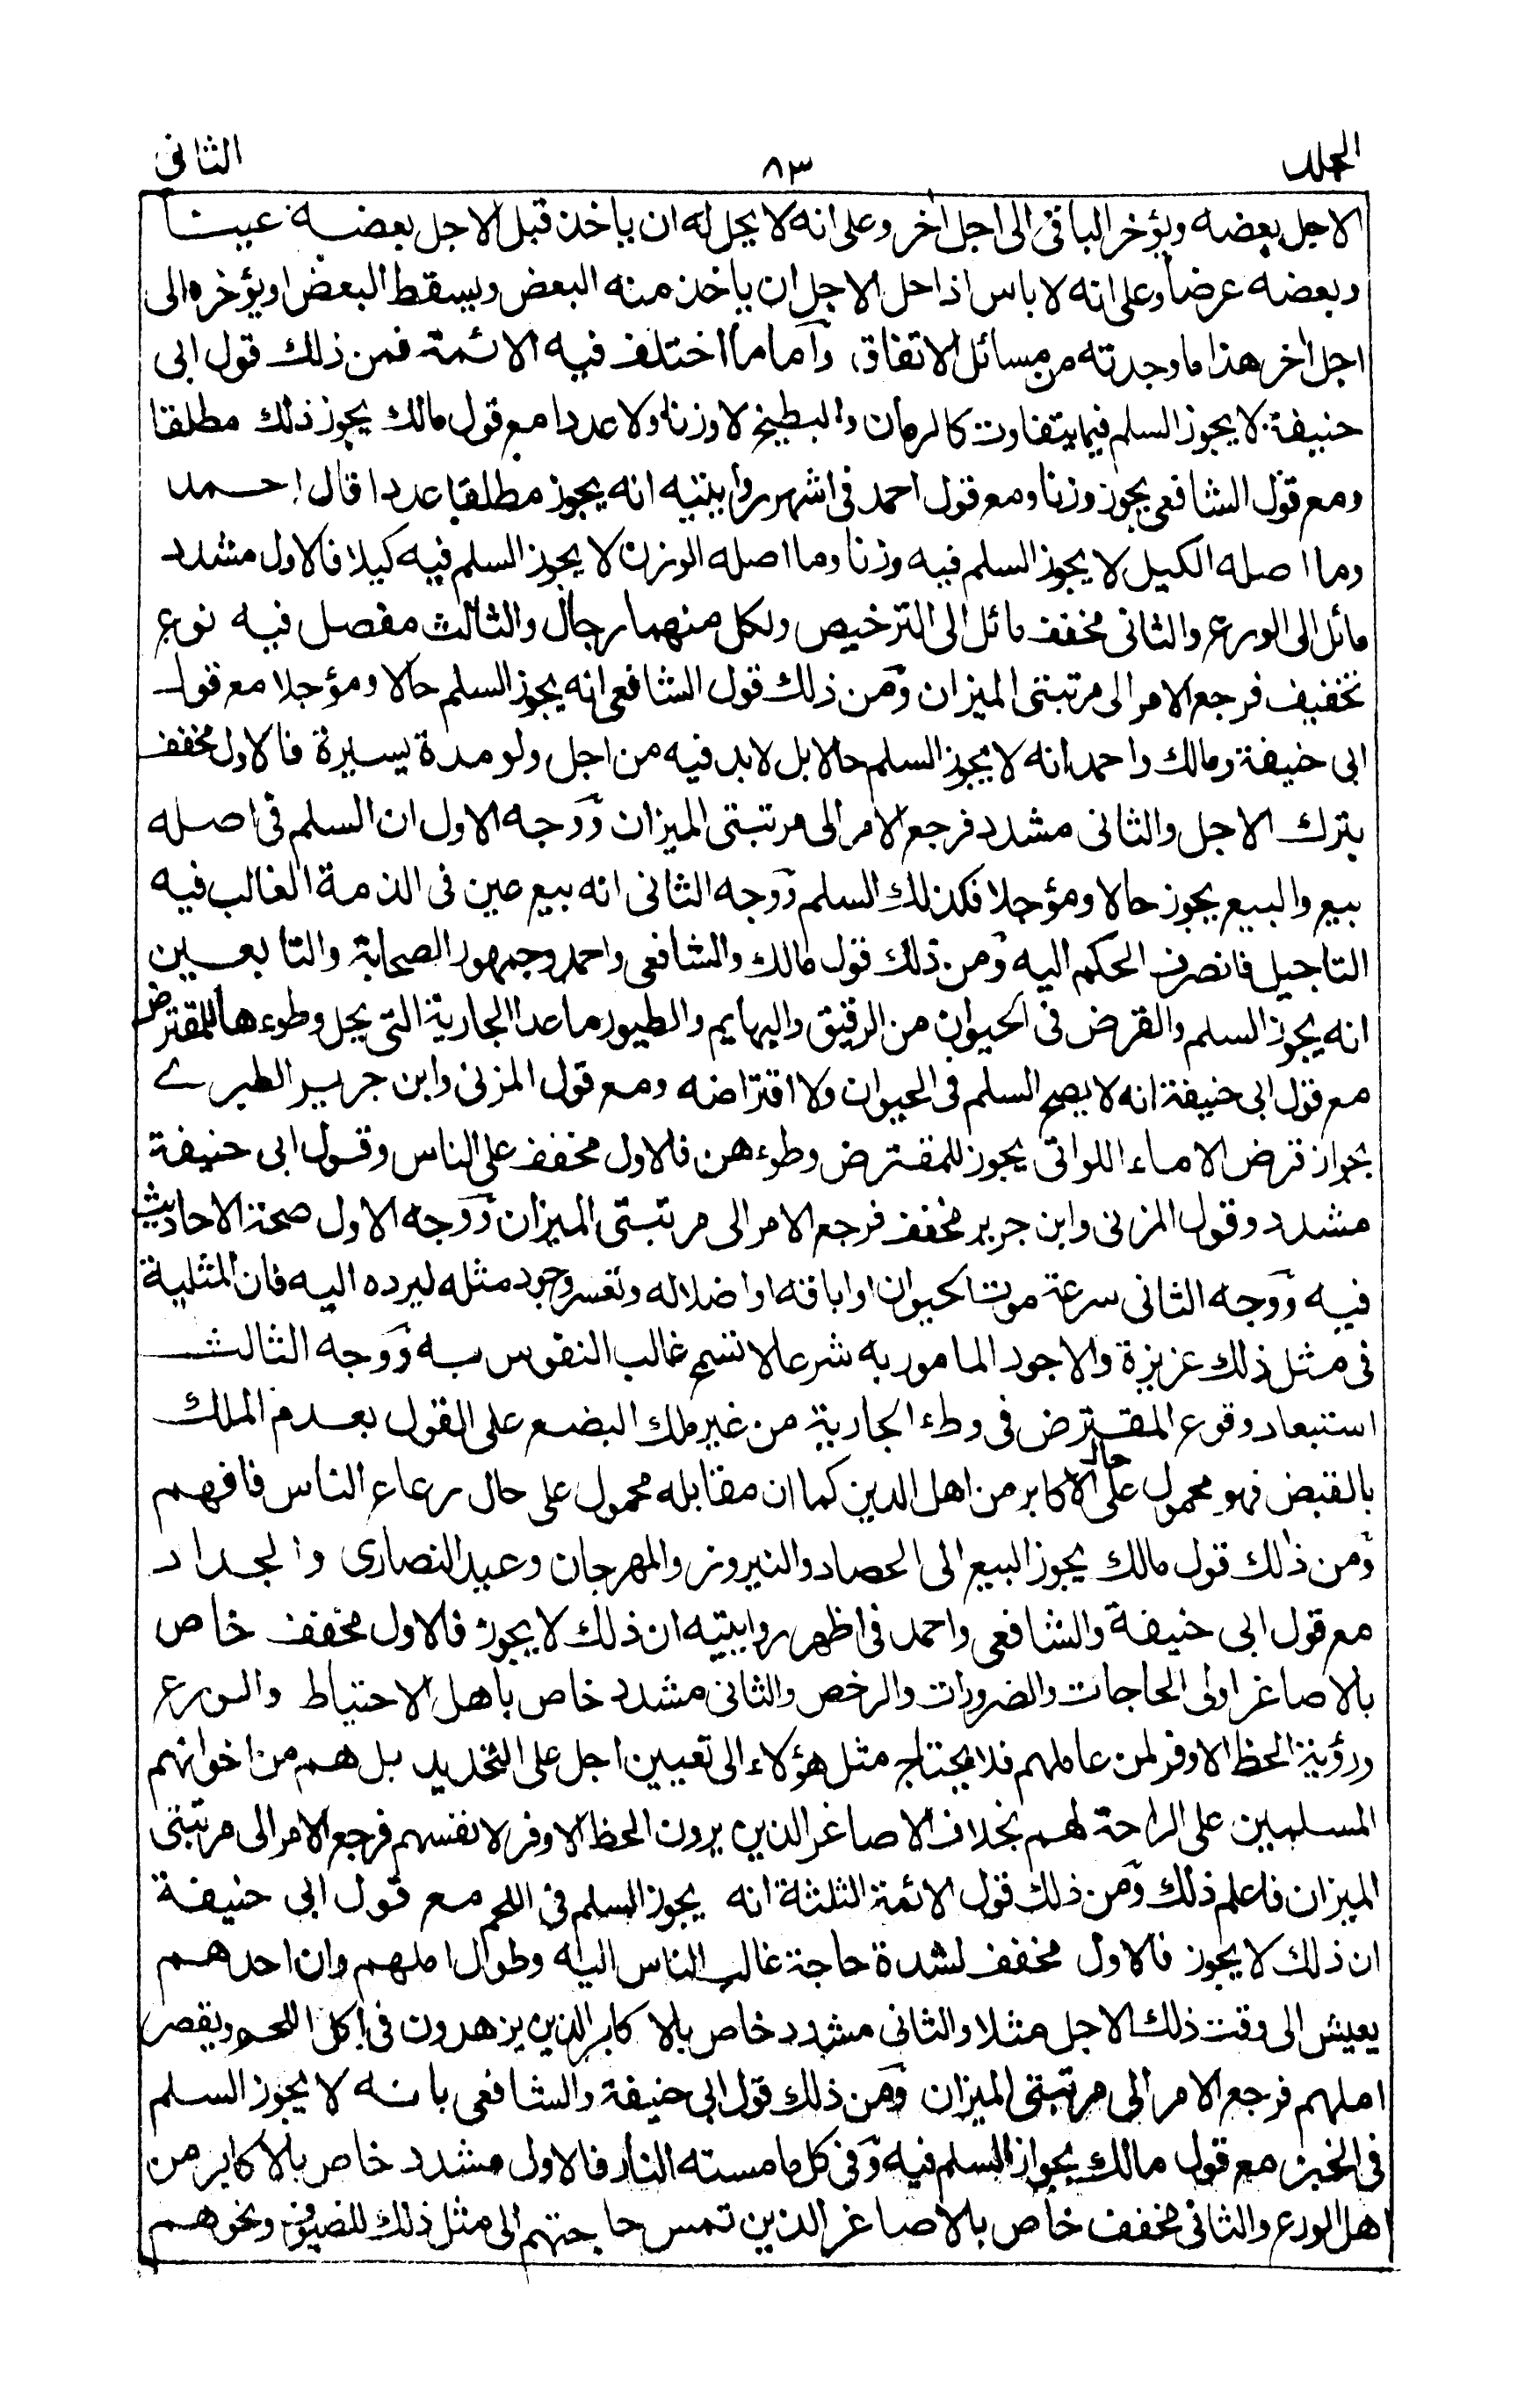 المجلد ٨٣ الثانی
الاجل بعضه ويؤخر الباقی الی اجل اخر وعلی انه لا يحل له ان ياخذ قبل الاجل بعضه عينا
وبعضه عرضا وعلی انه لا باس اذا حل الاجل ان ياخذ منه البعض ويسقط البعض او يؤخره الی
اجل اخر هذا ما وجدته من مسائل الاتفاق، وآما ما اختلف فيه الائمة فمن ذلك قول ابی
حنيفة لا يجوز السلم فيما يتفاوت كالرمان والبطيخ لا وزنا ولا عددا مع قول مالك يجوز ذلك مطلقا
ومع قول الشافعی يجوز وزنا ومع قول احمد فی اشهر روايتيه انه يجوز مطلقا عددا قال احمد
وما اصله الكيل لا يجوز السلم فيه وزنا وما اصله الوزن لا يجوز السلم فيه كيلا فالاول مشدد
مائل الی الورع والثانی مخفف مائل الی الترخيص ولكل منهما رجال والثالث مفصل فيه نوع
تخفيف فرجع الامر الی مرتبتی الميزان وٓمن ذلك قول الشافعی انه يجوز السلم حالا ومؤجلا مع قول
ابی حنيفة ومالك واحمد انه لا يجوز السلم حالا بل لابد فيه من اجل ولو مدة يسيرة فالاول مخفف
بترك الاجل والثانی مشدد فرجع الامر الی مرتبتی الميزان وٓوجه الاول ان السلم فی اصله
بيع والبيع يجوز حالا ومؤجلا فكذلك السلم وٓوجه الثانی انه بيع عين فی الذمة الغالب فيه
التاجيل فانصرف الحكم اليه وٓمن ذلك قول مالك والشافعی واحمد وجمهور الصحابة والتابعين
انه يجوز السلم والقرض فی الحيوان من الرقيق والبهايم والطيور ما عدا الجارية التی يحل وطوءها للمقترض
مع قول ابی حنيفة انه لا يصح السلم فی الحيوان ولا اقتراضه ومع قول المزنی وابن جرير الطبرے
بجواز قرض الاماء اللواتی يجوز للمقترض وطوءهن فالاول مخفف علی الناس وقول ابی حنيفة
مشدد وقول المزنی وابن جرير مخفف فرجع الامر الی مرتبتی الميزان وٓوجه الاول صحة الاحاديث
فيه وٓوجه الثانی سرعة موت الحيوان او اباقه او اضلاله وتعسر وجود مثله ليرده اليه فان المثلية
فی مثل ذلك عزيزة والاجود المامور به شرعا لا تسمح غالب النفوس به وٓوجه الثالث
استبعاد وقوع المقترض فی وطء الجارية من غير ملك البضع علی القول بعدم الملك
بالقبض فهو محمول علی حال الاكابر من اهل الدين كما ان مقابله محمول علی حال رعاع الناس فافهم
وٓمن ذلك قول مالك يجوز البيع الی الحصاد والنيروز والمهرجان وعيد النصاری والجداد
مع قول ابی حنيفة والشافعی واحمد فی اظهر روايتيه ان ذلك لا يجوز فالاول مخفف خاص
بالاصاغر اولی الحاجات والضرورات والرخص والثانی مشدد خاص باهل الاحتياط والورع
ورؤية الحظ الاوفر لمن عاملهم فلا يحتاج مثل هؤلاء الی تعيين اجل علی التحديد بل هم من اخوانهم
المسلمين علی الراحة لهم بخلاف الاصاغر الذين يرون الحظ الاوفر لانفسهم فرجع الامر الی مرتبتی
الميزان فاعلم ذلك وٓمن ذلك قول الائمة الثلثة انه يجوز السلم فی اللحم مع قول ابی حنيفة
ان ذلك لا يجوز فالاول مخفف لشدة حاجة غالب الناس اليه وطول املهم وان احدهم
يعيش الی وقت ذلك الاجل مثلا والثانی مشدد خاص بالاكابر الذين يزهدون فی اكل اللحم ويقصر
املهم فرجع الامر الی مرتبتی الميزان وٓمن ذلك قول ابی حنيفة والشافعی بانه لا يجوز السلم
فی الخبز مع قول مالك بجواز السلم فيه وٓفی كل ما مسته النار فالاول مشدد خاص بالاكابر من
اهل الورع والثانی مخفف خاص بالاصاغر الذين تمس حاجتهم الی مثل ذلك للضيوف ونحوهم